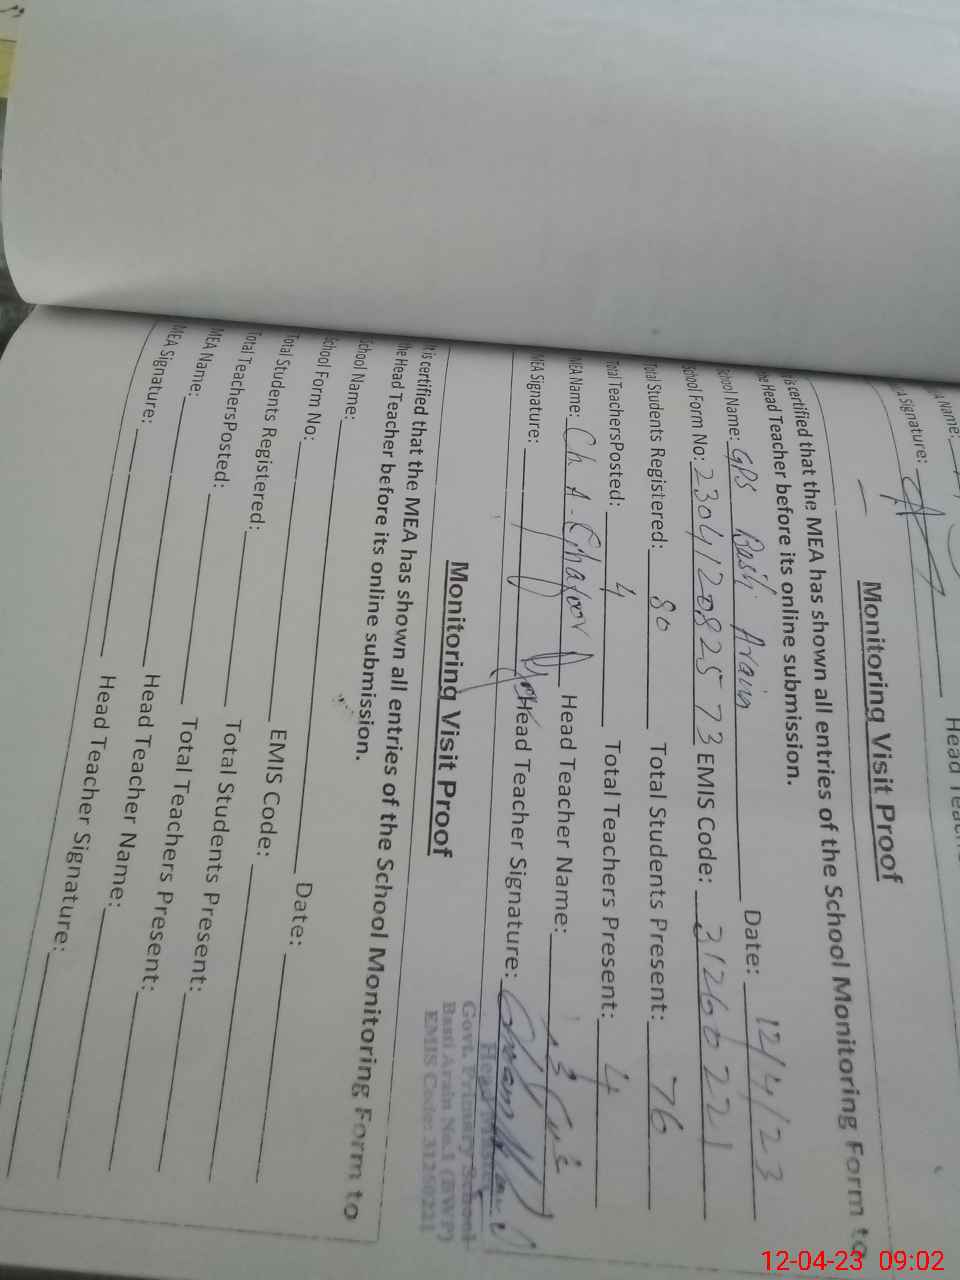 A Name:
A Signature:
Head Teach
Monitoring Visit Proof
It is certified that the MEA has shown all entries of the School Monitoring Form to
the Head Teacher before its online submission.
School Name: GPS Basti Arain Date: 12/4/23
School Form No: 230412082573 EMIS Code: 31260221
Total Students Registered: 80 Total Students Present: 76
Total TeachersPosted: 4 Total Teachers Present: 4
MEA Name: Ch A. Ghafoor Head Teacher Name:
MEA Signature: Head Teacher Signature:
Head
Govt. Primary School
Basti Arain No.1 (BWP)
EMIS Code: 31260221
Monitoring Visit Proof
It is certified that the MEA has shown all entries of the School Monitoring Form to
the Head Teacher before its online submission.
School Name: Date:
School Form No: EMIS Code:
Total Students Registered: Total Students Present:
Total TeachersPosted: Total Teachers Present:
MEA Name: Head Teacher Name:
MEA Signature: Head Teacher Signature:
12-04-23 09:02